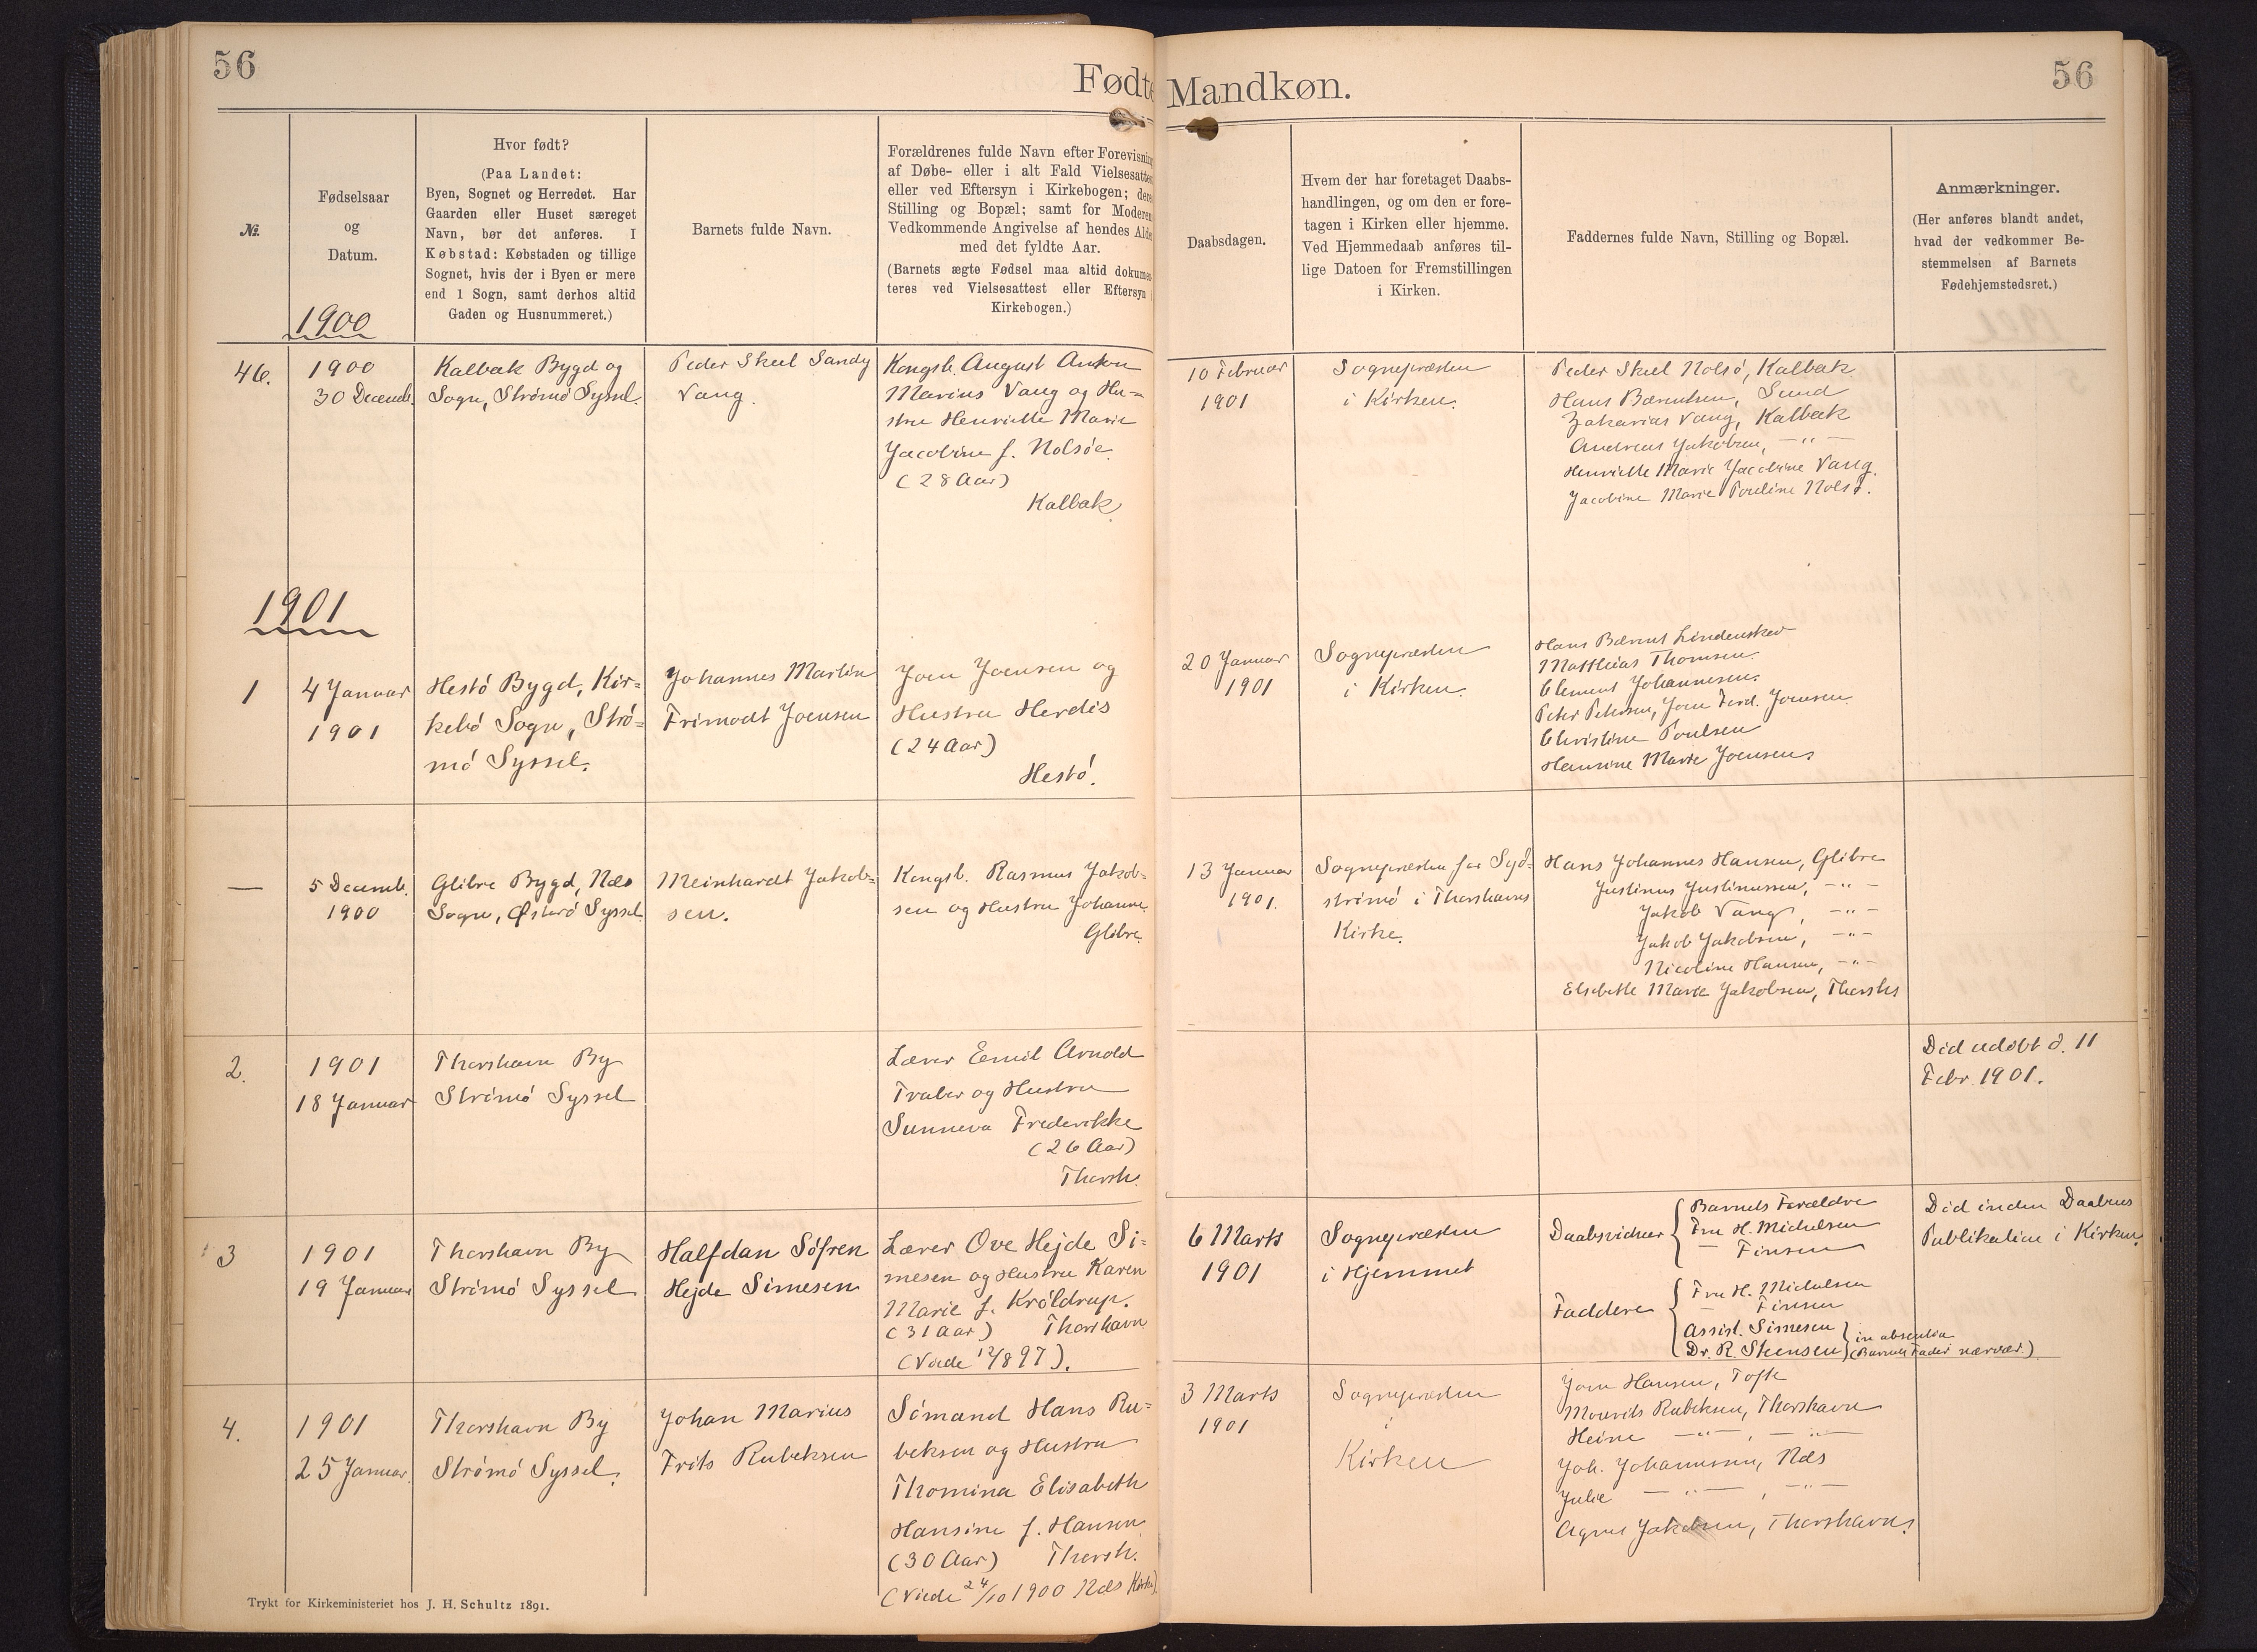 56
Fødte Mandkøn.
56
№.
Fødselsaar
og
Datum.
1900
Hvor født?
(Paa Landet:
Byen, Sognet og Herredet. Har
Gaarden eller Huset særeget
Navn, bør det anføres. I
Købstad: Købstaden og tillige
Sognet, hvis der i Byen er mere
end 1 Sogn, samt derhos altid
Gaden og Husnummeret.)
Barnets fulde Navn.
Forældrenes fulde Navn efter Forevisning
af Døbe- eller i alt Fald Vielsesattest
eller ved Eftersyn i Kirkebogen; deres
Stilling og Bopæl; samt for Moderens
Vedkommende Angivelse af hendes Alder
med det fyldte Aar.
(Barnets ægte Fødsel maa altid dokumen-
teres ved Vielsesattest eller Eftersyn i
Kirkebogen.)
Daabsdagen.
Hvem der har foretaget Daabs-
handlingen, og om den er fore-
tagen i Kirken eller hjemme.
Ved Hjemmedaab anføres til-
lige Datoen for Fremstillingen
i Kirken.
Faddernes fulde Navn, Stilling og Bopæl.
Anmærkninger.
(Her anføres blandt andet,
hvad der vedkommer Be-
stemmelsen af Barnets
Fødehjemstedsret.)
46.
1900
30 Decemb.
Kalbak Bygd og
Sogn, Strømø Syssel.
Peder Skeel Sandy
Vang.
Kongsb. August Anton
Marius Vang og Hu-
stru Henriette Marie
Jacobine f. Nolsøe.
(28 Aar)
Kalbak
10 Februar
1901
Sognepræsten
i Kirken.
Peder Skeel Nolsø, Kalbak
Hans Bærentsen, Sund
Zakarias Vang, Kalbak
Andreas Jakobsen, — " —
Henriette Marie Jacobine Vang.
Jacobine Marie Pouline Nolsø.
1901
1
4 Januar
1901
Hestø Bygd, Kir-
kebø Sogn, Strø-
mø Syssel.
Johannes Martin
Frimodt Joensen
Joen Joensen og
Hustru Herdis
(24 Aar)
Hestø.
20 Januar
1901
Sognepræsten
i Kirken.
Hans Bærent Lindenskov
Matthias Thomsen
Clement Johannesen.
Peter Petersen, Joen Ferd. Joensen
Christine Poulsen
Hansine Marie Joensen.
—
5 Decemb.
1900
Glibre Bygd, Næs
Sogn, Østerø Syssel
Meinhardt Jakob-
sen.
Kongsb. Rasmus Jakob-
sen og Hustru Johanne
Glibre.
13 Januar
1901.
Sognepræsten for Syd-
strømø i Thorshavns
Kirke.
Hans Johannes Hansen, Glibre
Justinus Justinussen, — " —
Jakob Vang, — " —
Jakob Jakobsen, — " —
Nicoline Hansen, — " —
Elsebeth Marie Jakobsen, Thorshs
2.
1901
18 Januar
Thorshavn By
Strømø Syssel
Lærer Emil Arnold
Traber og Hustru
Sunneva Frederikke
(26 Aar)
Thorsh.
Død udøbt d. 11
Febr. 1901.
3
1901
19 Januar
Thorshavn By
Strømø Syssel
Halfdan Söfren
Hejde Simesen
Lærer Ove Hejde Si-
mesen og Hustru Karen
Marie f. Krøldrup.
(31 Aar) Thorshavn
(Viede 12/8 97).
6 Marts
1901
Sognepræsten
i Hjemmet
Daabsvidner
Barnets Forældre
Fru H. Michelsen
— Finsen
Faddere
Fru H. Michelsen
— Finsen
Assist. Simesen
Dr. R. Steensen
in absentia
(Barnets Fader nærvær.)
Død inden Daabens
Publikation i Kirken.
4.
1901
25 Januar.
Thorshavn By
Strømø Syssel.
Johan Marius
Frits Rubeksen
Sømand Hans Ru-
beksen og Hustru
Thomina Elisabeth
Hansine f. Hansen
(30 Aar) Thorsh.
(Viede 24/10 1900 Næs Kirke).
3 Marts
1901
Sognepræsten
i
Kirken
Joen Hansen, Tofte
Mourits Rubeksen, Thorshavn
Heine — " — , — " —
Joh. Johannesen, Næs
Julie — " — , — " —
Agnes Jakobsen, Thorshavn.
Trykt for Kirkeministeriet hos J. H. Schultz 1891.